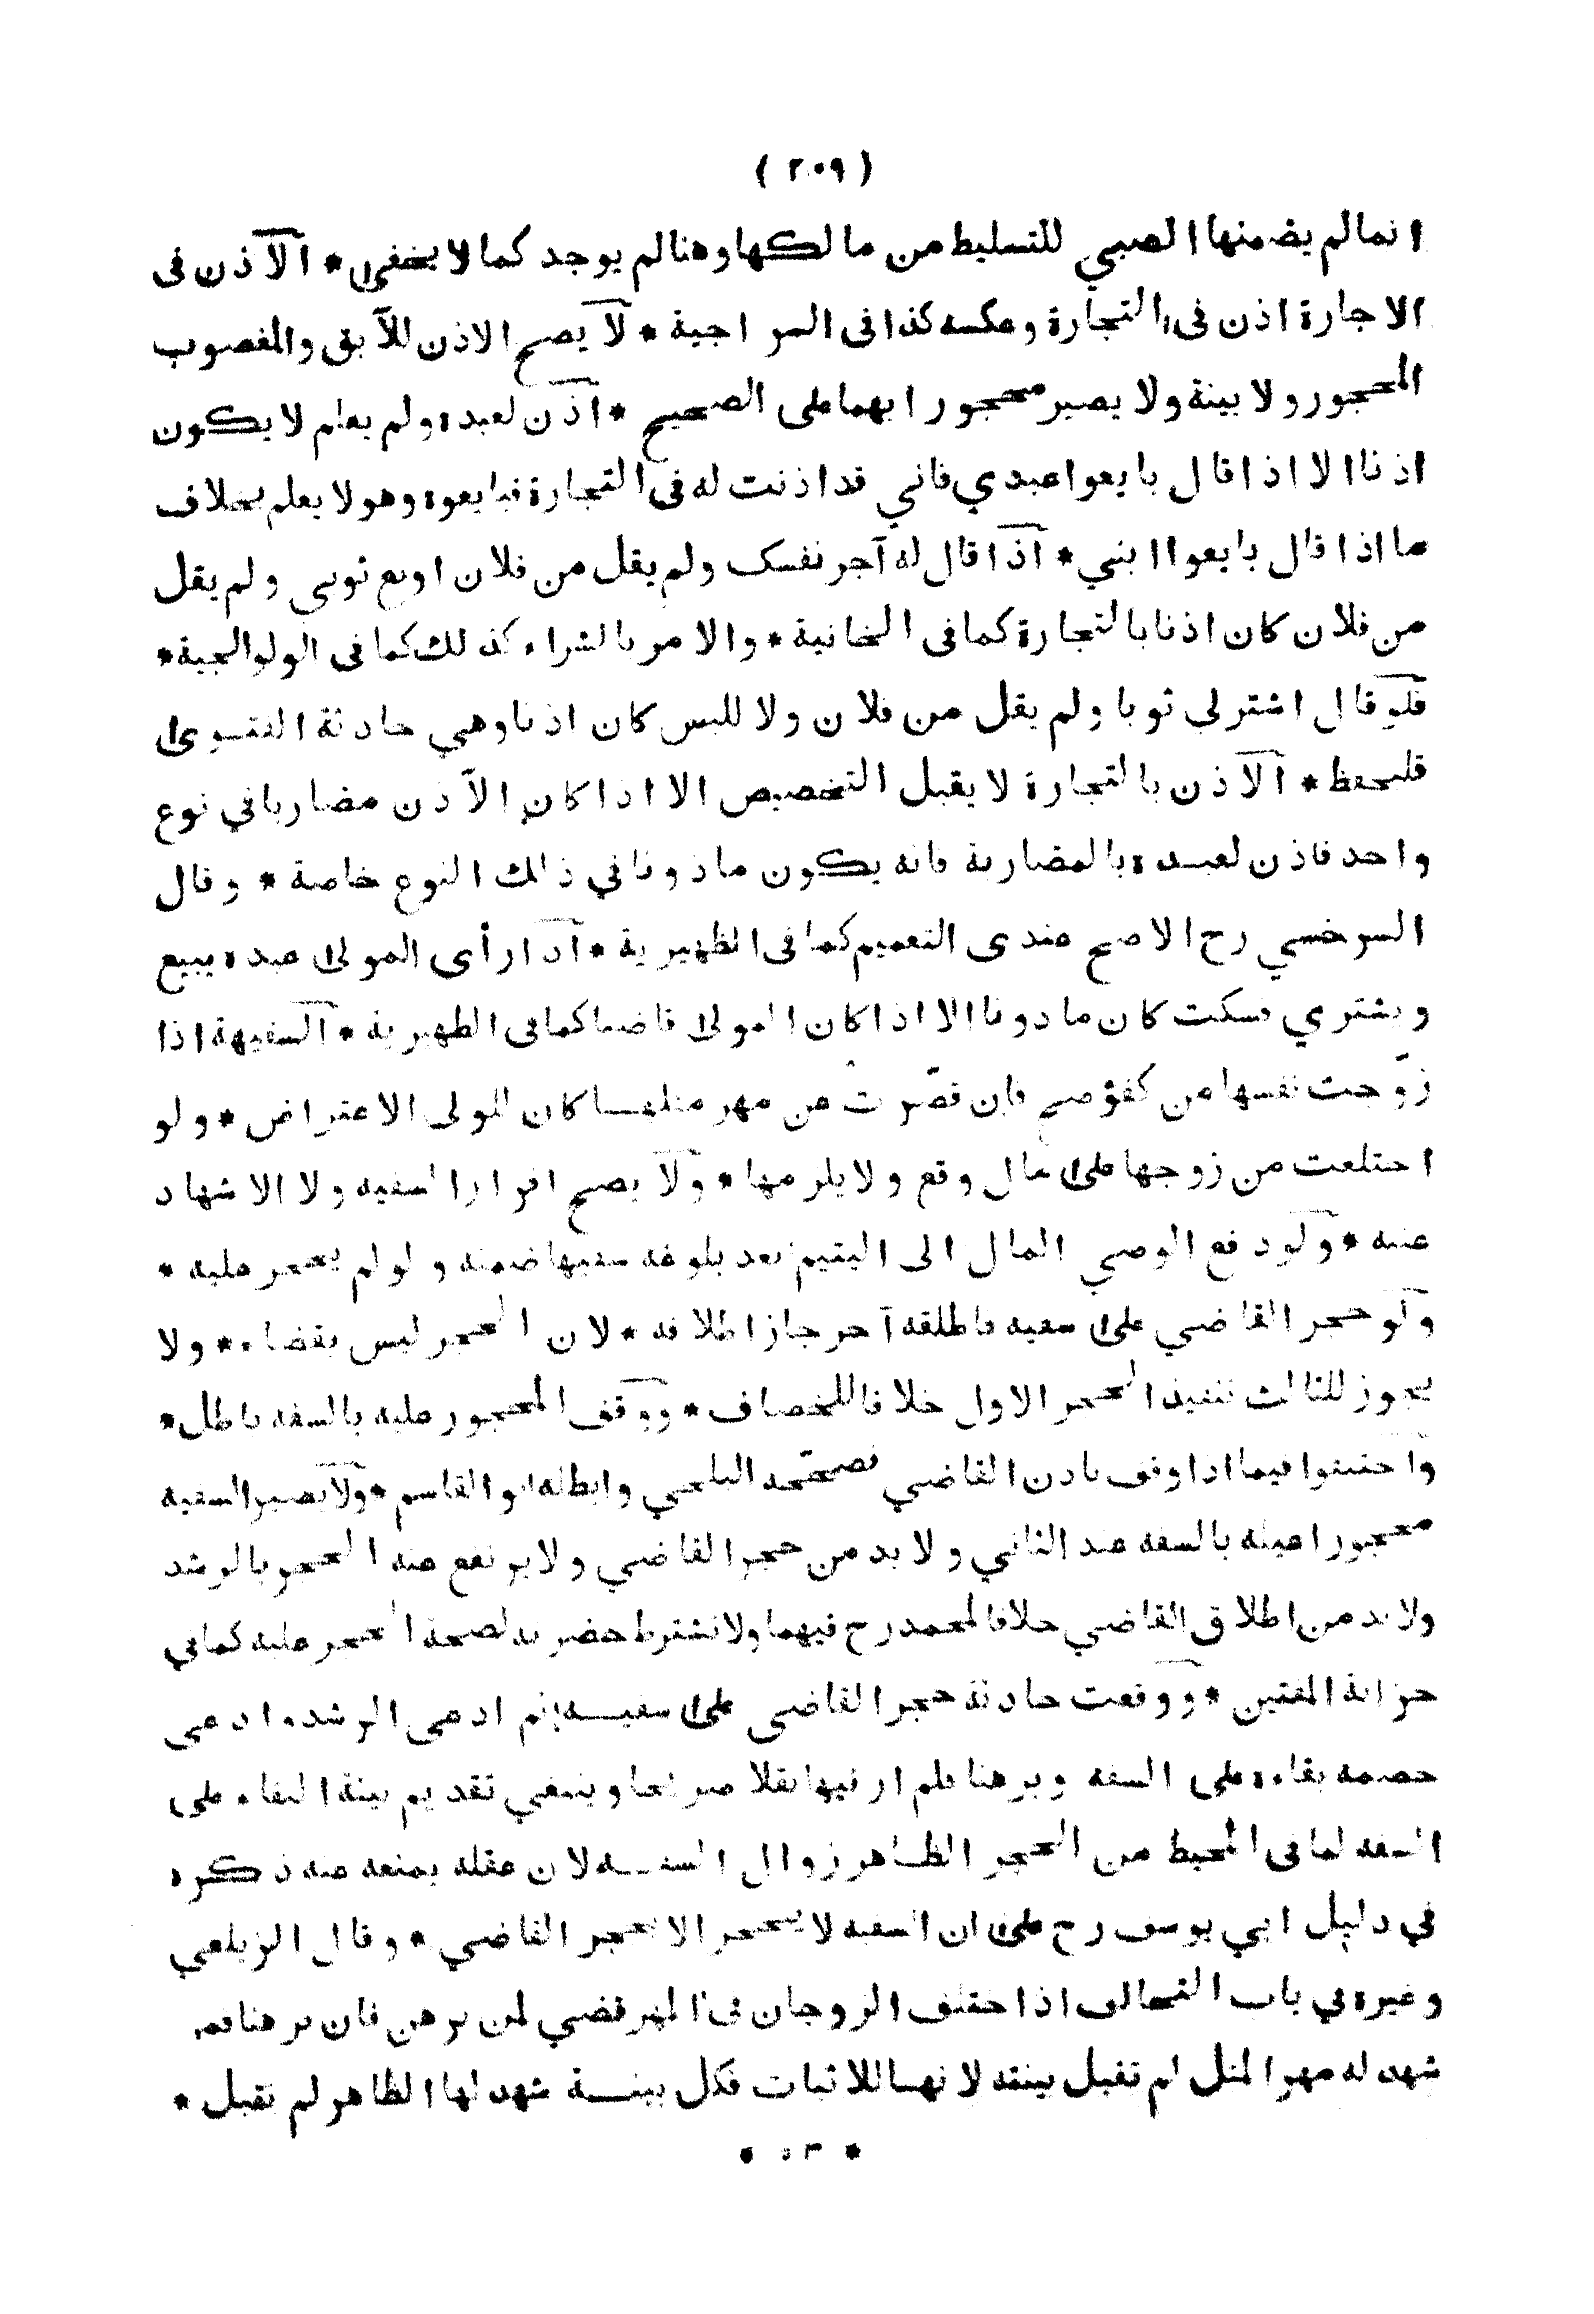 ( ٢٠٩ )
انما لم يضمنها الصبي للتسليط من مالكها وهنا لم يوجد كما لا يخفى * الآذن فى
الاجارة اذن فى التجارة وعكسه كذا فى السراجية * لا يصح الاذن للآبق والمغصوب
المجحور ولا بينة ولا يصير محجورا بهما على الصحيح * اذن لعبده ولم يعلم لا يكون
اذنا الا اذا قال بايعوا عبدي فاني قد اذنت له فى التجارة فبايعوه وهو لا يعلم بخلاف
ما اذا قال بايعوا ابني * اذا قال له آجر نفسك ولم يقل من فلان او بع ثوبى ولم يقل
من فلان كان اذنا بالتجارة كما فى الخانية * والامر بالشراء كذلك كما فى الولوالجية *
فلو قال اشتر لى ثوبا ولم يقل من فلان ولا للبس كان اذنا وهي حادثة الفتوى
فليحفظ * الآذن بالتجارة لا يقبل التخصيص الا اذا كان الآذن مضاربا في نوع
واحد فاذن لعبده بالمضاربة فانه يكون ماذونا في ذلك النوع خاصة * وقال
السرخسي رح الاصح عندى التعميم كما فى الظهيرية * اذا رأى المولى عبده يبيع
ويشتري فسكت كان ماذونا الا اذا كان المولى قاضيا كما فى الظهيرية * السفيهة اذا
زوّجت نفسها من كفؤ صح فان قصّرت عن مهر مثلها كان للولى الاعتراض * ولو
اختلعت من زوجها على مال وقع ولا يلزمها * ولا يصح اقرار السفيه ولا الاشهاد
عليه * ولو دفع الوصي المال الى اليتيم بعد بلوغه سفيها ضمنه ولو لم يحجر عليه *
ولو حجر القاضي على سفيه فاطلقه آخر جاز اطلاقه * لان الحجر ليس بقضاء * ولا
يجوز للثالث تنفيذ الحجر الاول خلافا للخصاف * ووقف المحجور عليه بالسفه باطل *
واختلفوا فيما اذا وقف باذن القاضي فصححه البلخي وابطله ابو القاسم * ولا يصير السفيه
محجورا عليه بالسفه عند الثاني ولا بد من حجر القاضي ولا يرتفع عنه الحجر بالرشد
ولا بد من اطلاق القاضي خلافا لمحمد رح فيهما ولا تشترط حضرته لصحة الحجر عليه كما في
خزانة المفتين * ووقعت حادثة حجر القاضى على سفيه ثم ادعى الرشد وادعى
خصمه بقاءه على السفه وبرهنا فلم ار فيها نقلا صريحا وينبغي تقديم بينة البقاء على
السفه لما فى المحيط من الحجر الظاهر زوال السفه لان عقله يمنعه عنه ذكره
في دليل ابي يوسف رح على ان السفيه لا ينحجر الا بحجر القاضي * وقال الزيلعي
وغيره في باب التحالف اذا اختلف الزوجان فى المهر قضي لمن برهن فان برهنا فمن
شهد له مهر المثل لم تقبل بينته لانها للاثبات فكل بينة شهد لها الظاهر لم تقبل *
* ٥٣ *